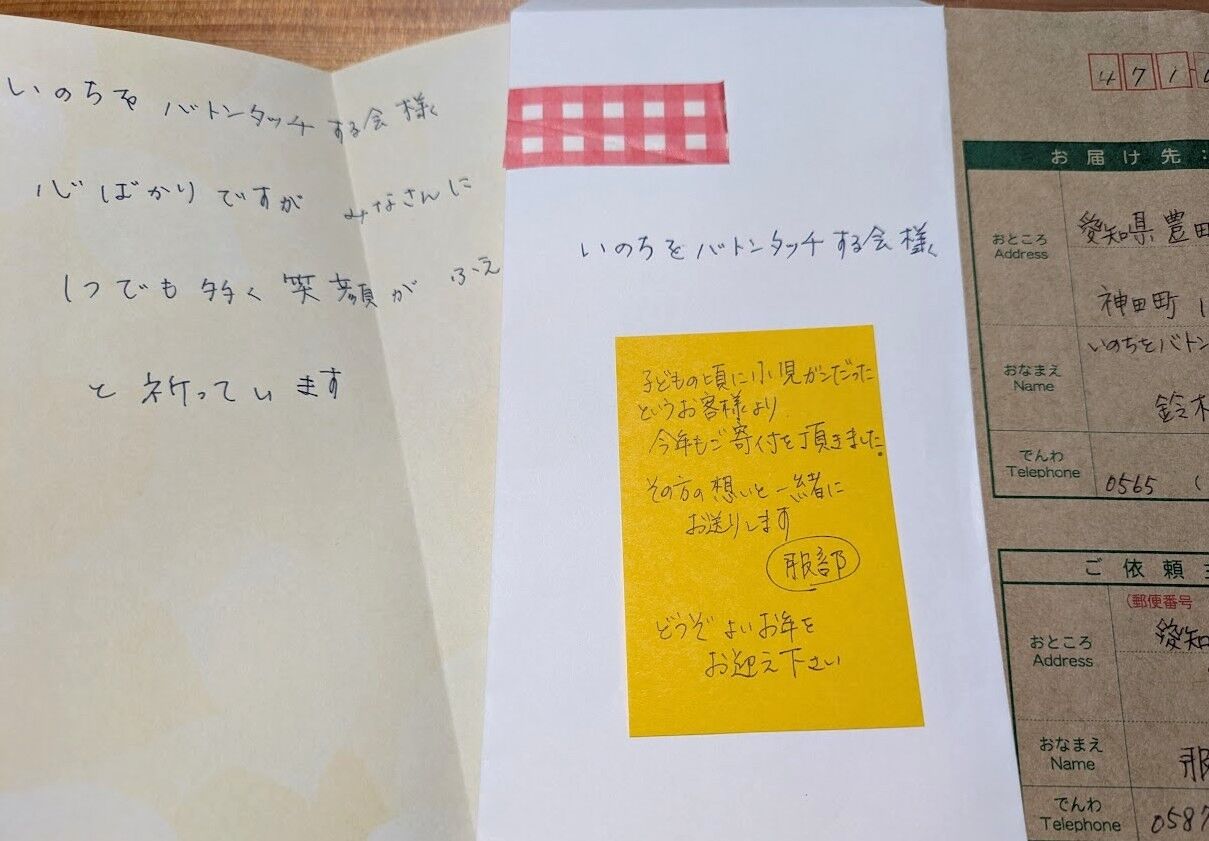 いのちを バトンタッチする会様
心ばかりですが みなさんに
1つでも多く 笑顔が ふえ
と祈っています
いのちをバトンタッチする会様
子どもの頃に小児ガンだった
というお客様より
今年もご寄付を頂きました。
その方の想いと一緒に
お送りします
服部
どうぞ よいお年を
お迎え下さい
471
お届け先:
おところ
Address
愛知県豊田
神田町 1
おなまえ
Name
いのちをバトン
鈴木
でんわ
Telephone
0565 (
ご依頼主
(郵便番号
おところ
Address
愛知
おなまえ
Name
服
でんわ
Telephone
0587